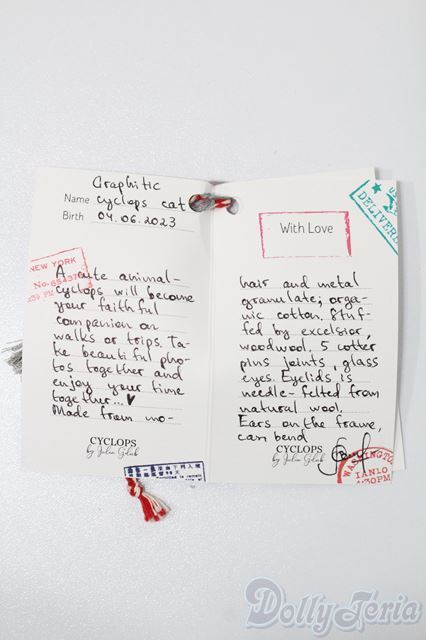 Graphitic
Name cyclops cat
Birth 04.06.2023
NEW YORK
A cute animal-
cyclops will become
your faithful
companion on
walks or trips. Ta-
ke beautiful pho-
tos together and
enjoy your time
together...♥
Made from mo-
CYCLOPS
by Julia Gluk
With Love
DELIVERE
hair and metal
granulate; orga-
nic cotton. Stuf-
fed by excelsior,
woodwool, 5 cotter
pins joints, glass
eyes. Eyelids is
needle-felted from
natural wool.
Ears on the frame,
can bend
CYCLOPS
by Julia Gluk
WASHINGTO
IANLO
4:30PM
DollyTeria